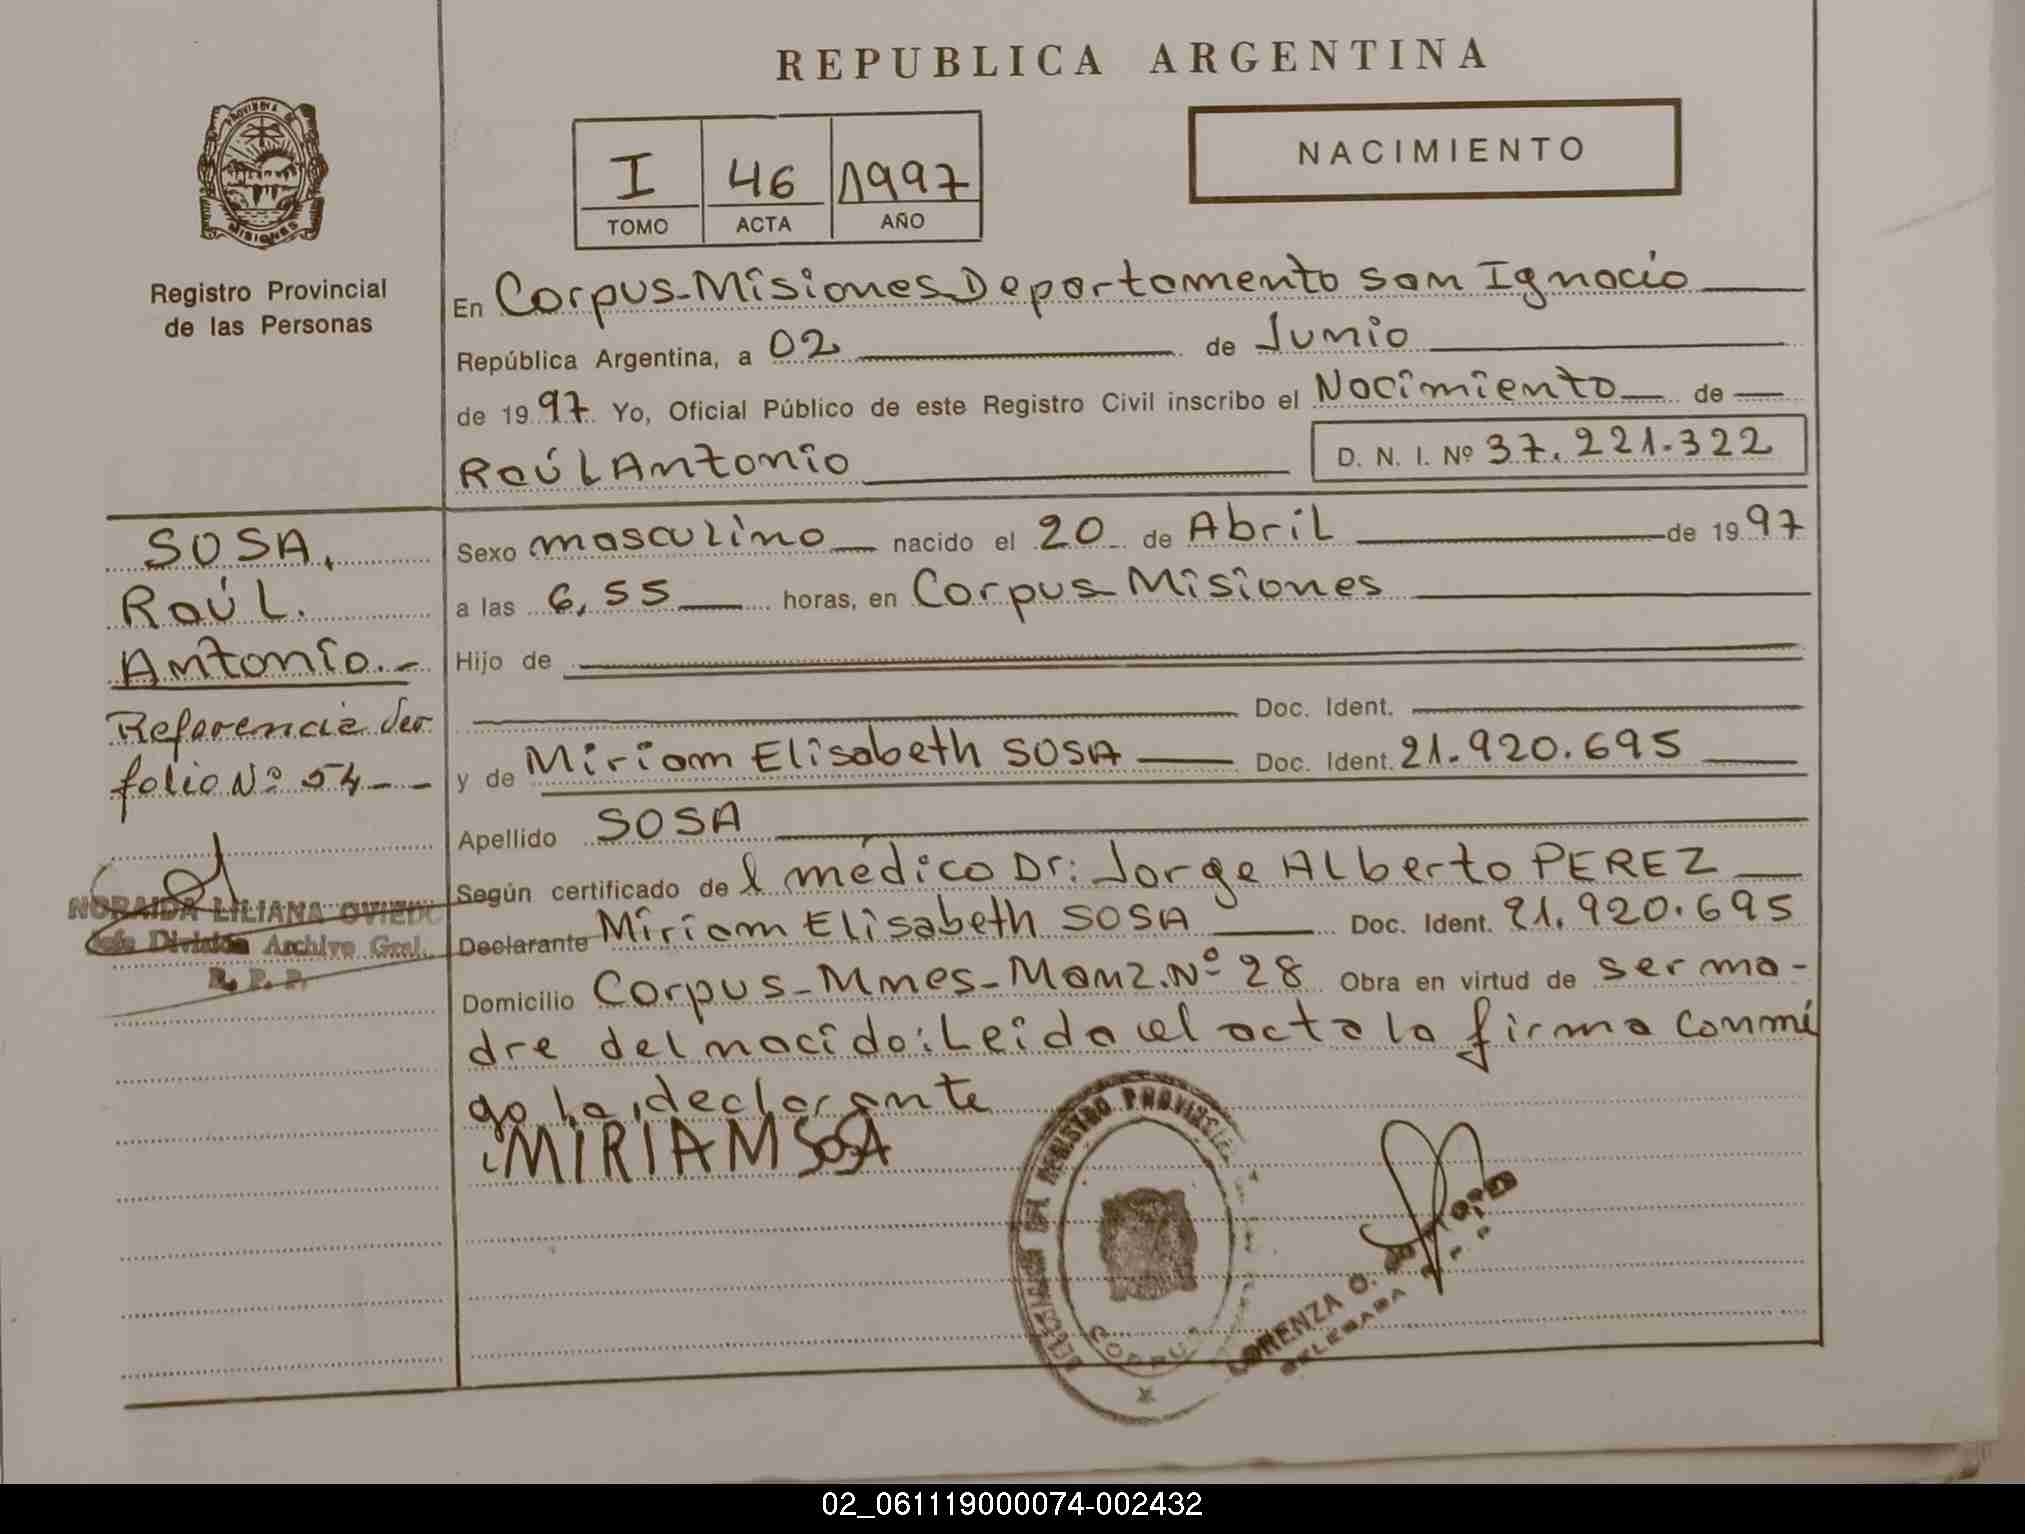 REPUBLICA ARGENTINA
PROVINCIA DE
MISIONES
Registro Provincial
de las Personas
I 46 1997
TOMO ACTA AÑO
NACIMIENTO
En Corpus-Misiones Departamento San Ignacio
República Argentina, a 02 de Junio
de 1997 Yo, Oficial Público de este Registro Civil inscribo el Nacimiento de
RAÚL Antonio D. N. I. Nº 37.221.322
SOSA,
Raúl.
Antonio.-
Referencia Ver
folio Nº 54--
NORAIDA LILIANA OVIEDO
Jefe División Archivo Gral.
R. P. P.
Sexo masculino nacido el 20 de Abril de 1997
a las 6,55 horas, en Corpus-Misiones
Hijo de
Doc. Ident.
y de Miriam Elisabeth SOSA Doc. Ident. 21.920.695
Apellido SOSA
Según certificado del médico Dr: Jorge Alberto PEREZ
Declarante Miriam Elisabeth SOSA Doc. Ident. 21.920.695
Domicilio Corpus-Mnes-Manz.Nº 28 Obra en virtud de ser ma-
dre del nacido: Leida el acta la firma conmi
go la declarante
MIRIAM SOSA
DELEGACION DEL REGISTRO PROVINCIAL
CORPUS
LORENZA O.
DELEGADA R. P. P.
02_061119000074-002432